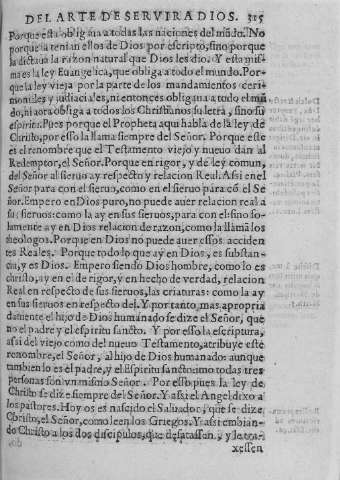 DEL ARTE DE SERVIR A DIOS. 315
Porque esta obligaua a todas las naciones del mũdo. No
porque la tenian ellos de Dios por escripto, sino porque
la dictaua la razon natural que Dios les dio. Y esta mis
ma es la ley Euangelica, que obliga a todo el mundo. Por-
que la ley vieja por la parte de los mandamientos ceri
moniales y judiciales, ni entonces obligaua a todo el mũ
do, ni aora obliga a todos los Christianos su letra, sino su
espiritu. Pues porque el Propheta aqui habla de la ley de
Christo, por esso la llama siempre del Señor. Porque este
es el renombre que el Testamento viejo y nueuo dan al
Redemptor, el Señor. Porque en rigor, y de ley comun,
del Señor al sieruo ay respecto y relacion Real. Assi en el
Señor para con el sieruo, como en el sieruo para cõ el Se
ñor. Empero en Dios puro, no puede auer relacion real a
sus sieruos: como la ay en sus sieruos, para con el: sino so-
lamente ay en Dios relacion de razon, como la llamã los
theologos. Porque en Dios no puede auer essos acciden
tes Reales. Porque todo lo que ay en Dios, es substan-
cia, y es Dios. Empero siendo Dios hombre, como lo es
christo, ay en el de rigor, y en hecho de verdad, relacion
Real en respecto de sus sieruos, las criaturas: como la ay
en sus sieruos en respecto del. Y por tanto mas apropria
damente el hijo de Dios humanado se dize el Señor, que
no el padre y el espiritu sancto. Y por esso la escriptura,
assi del viejo como del nueuo Testamento, atribuye este
renombre, el Señor, al hijo de Dios humanado: aunque
tambien lo es el padre, y el Espiritu sancto: imo todas tres
personas son vn mismo Señor. Por esso pues la ley de
Christo se dize siempre del Señor. Y assi el Angel dixo a
los pastores. Hoy os es nascido el Saluador, que se dize
Christo, el Señor, como leen los Griegos. Y assi embian-
do Christo a los dos discipulos, que desatassen, y le tra-
xessen